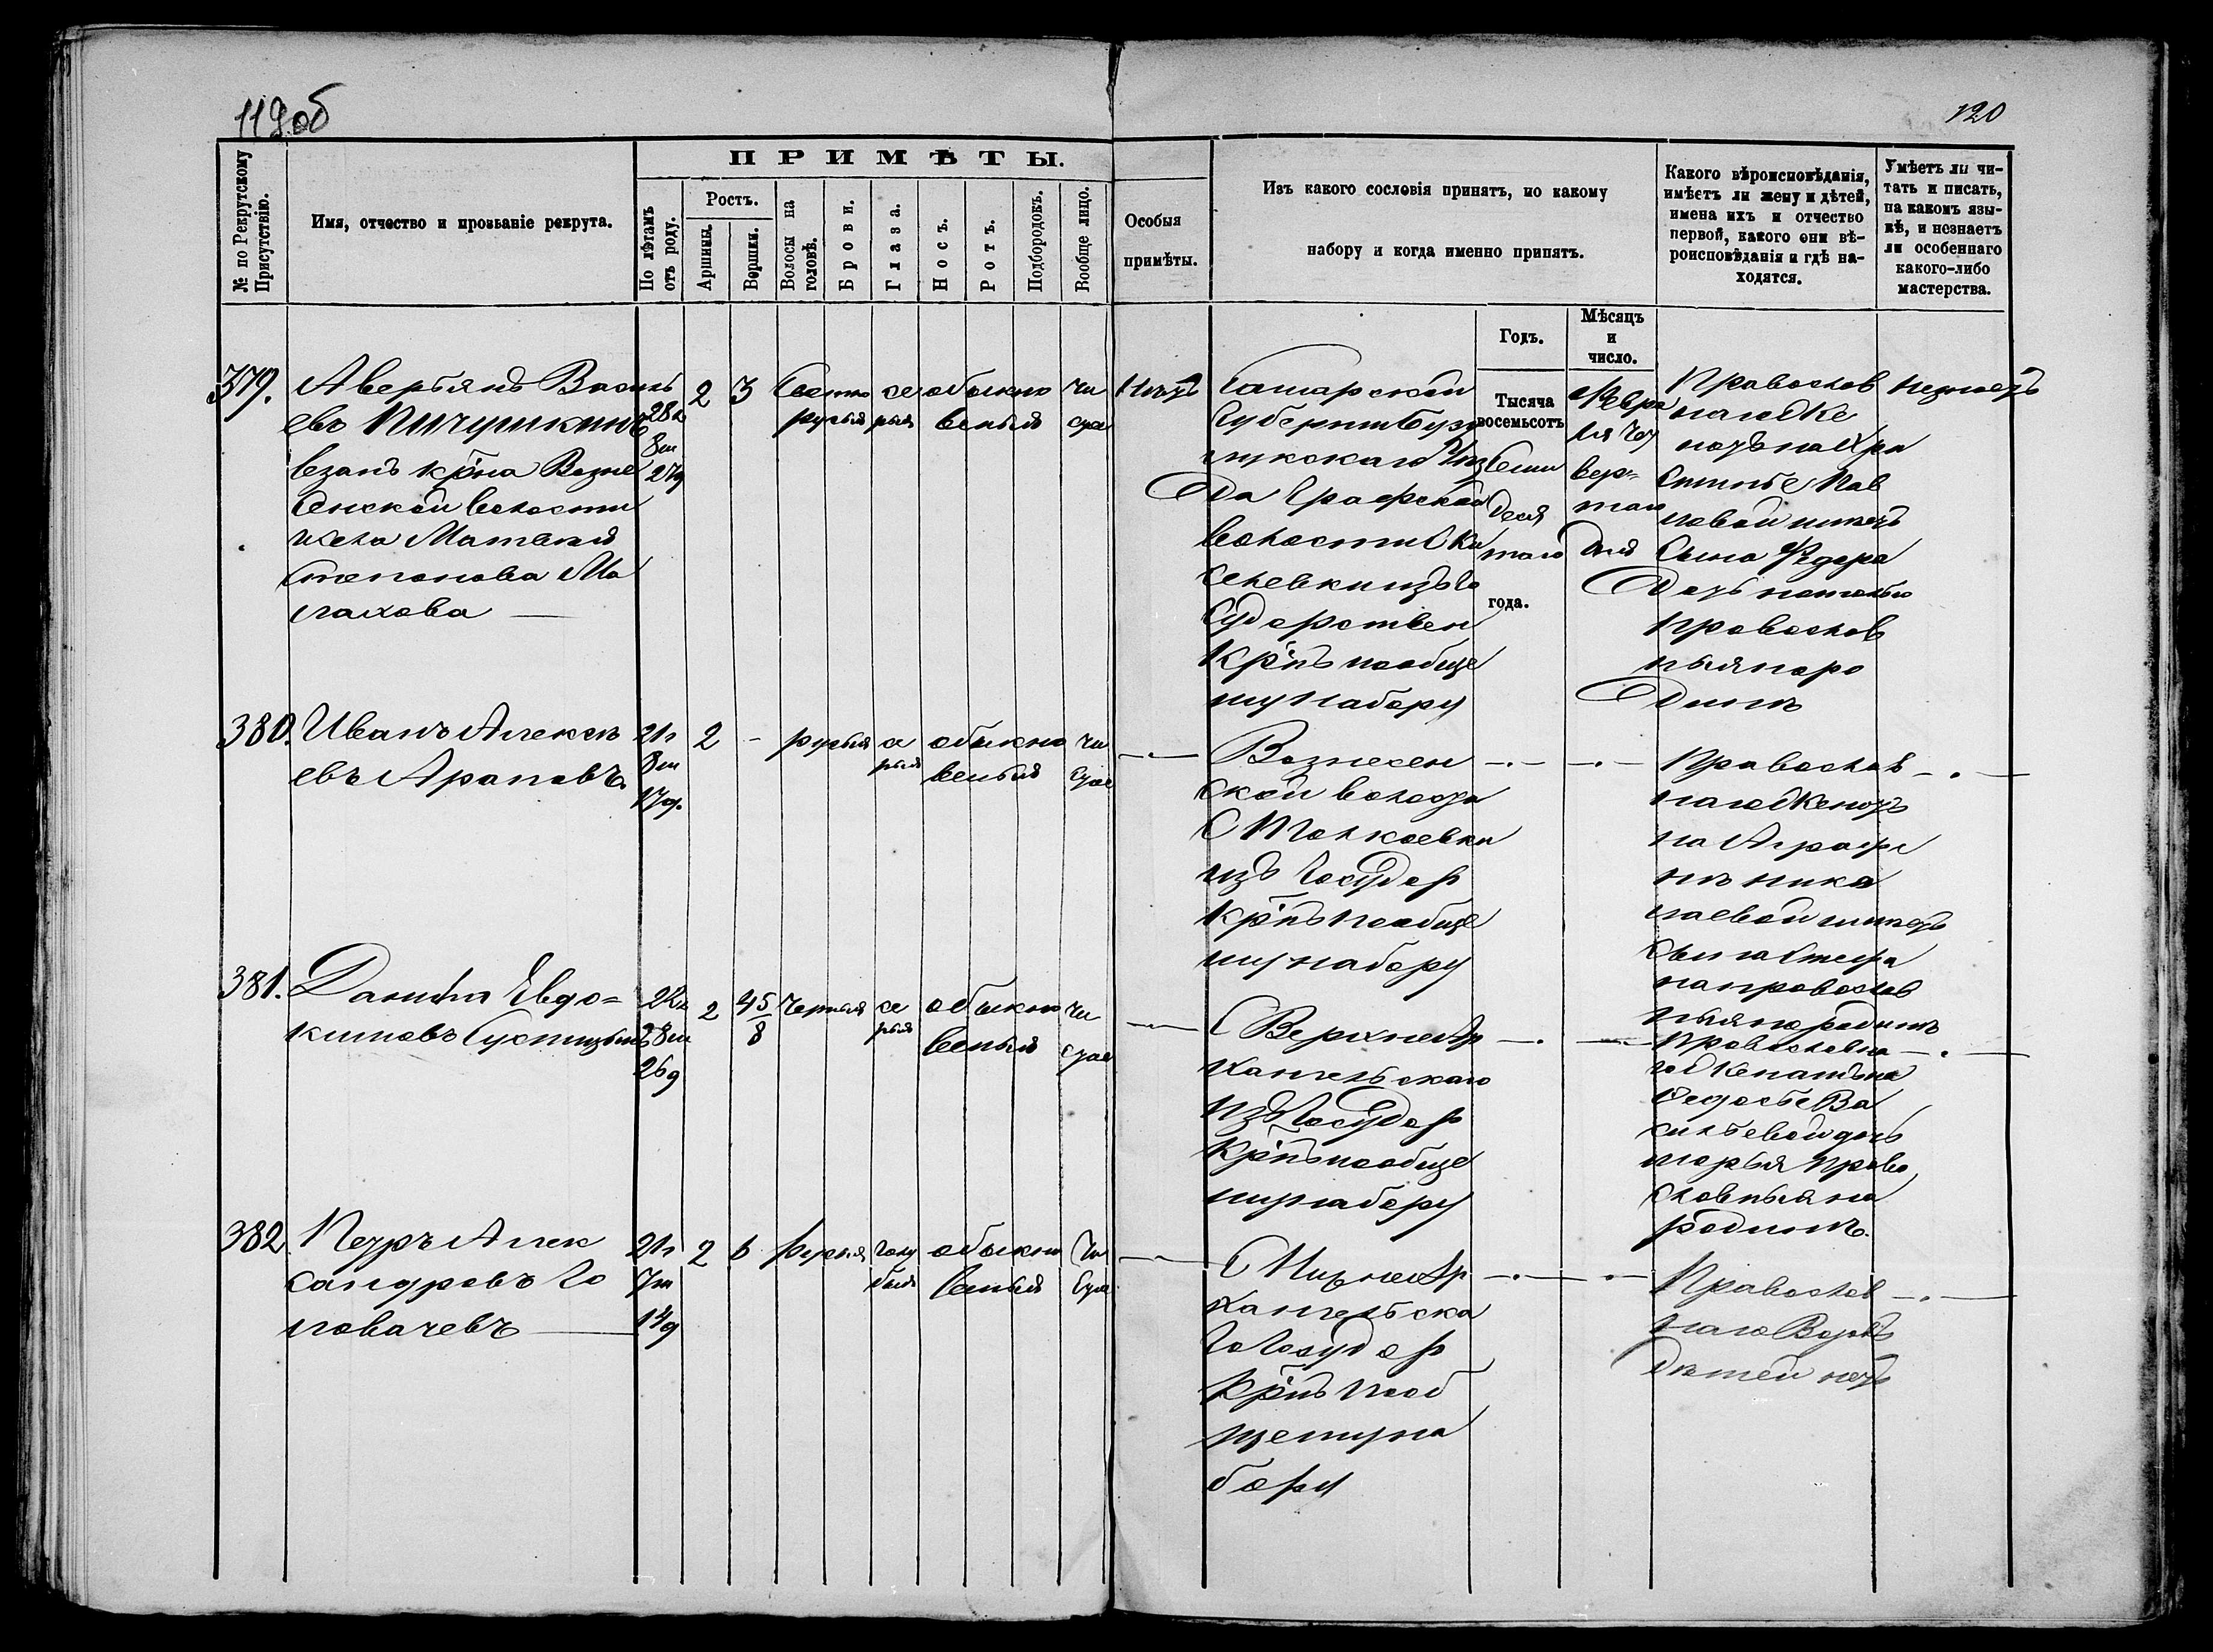 119 об
120
№ по Рекрутскому Присутствію.
Имя, отчество и прозваніе рекрута.
ПРИМѢТЫ.
По лѣтамъ отъ роду.
Ростъ.
Аршины.
Вершки.
Волосы на головѣ.
Брови.
Глаза.
Носъ.
Ротъ.
Подбородокъ.
Вообще лицо.
Особыя
примѣты.
Изъ какого сословія принятъ, по какому
набору и когда именно принятъ.
Какого вѣроисповѣданія,
имѣетъ ли жену и дѣтей,
имена ихъ и отчество
первой, какого они вѣ-
роисповѣданія и гдѣ на-
ходятся.
Умѣетъ ли чи-
тать и писать,
на какомъ язы-
кѣ, и незнаетъ
ли особеннаго
какого-либо
мастерства.
Годъ.
Мѣсяцъ
и
число.
379.
Аверьянъ Василь
евъ Пичушкинъ
взанъ кр-на Возне
сенской волости
Матвея
Степанова Ма
лахова —
28 л
8 м
27 д
2
3
Светло
русыя
се
рыя
обыкно
веный
чи
стое
Нѣтъ
Самарской
Губерніи Бузу
лукскаго Уѣз
да Графской
волости
изъ Го
сударствен
кр-нъ пообще
му набору
Тысяча
восемьсотъ
Семи
деся
таго
года.
Февра
ля Чет
вер-
таго
дня
Православ
наго Же
натъ на Хри
стинье Пав
ловой имеетъ
Сына Федора
Дочь Наталью
Православ
ныя на ро
дине
Незнаетъ
380.
Иванъ Алексе
евъ Араповъ.
21 л
8 м
17 д.
2
-
русыя
се
рыя
обыкно
веный
чи
стое
Вознесен
ской волости
С Толкаевки
изъ Государ
кр-нъ пообще
му набору
Православ
наго Женатъ
на Аграфе
не Нико
лаевой имеетъ
сына Стефа
на православ
ныя на родине
381.
Данила Евдо-
кимовъ
8 м
26 д
2
4 5/8
Черныя
се
рыя
обыкно
веный
чи
стое
С Верхне Ар
хангельскаго
изъ Государ
Кр-нъ пообще
му набору
Православна
го Женатъ на
Федосье Ва
сильевой дочь
Марья Право
славныя на
родине.
382
Петръ Алек
сандровъ Го
ловачевъ —
21 л
7 м
14 д
2
6
Русыя
голу
быя
обыкно
веный
Чи
стое
С Нижне Ар
хангельска
го Государ
Кр-нъ пооб
щему на
бору
Православ
наго Вдовъ
детей нетъ